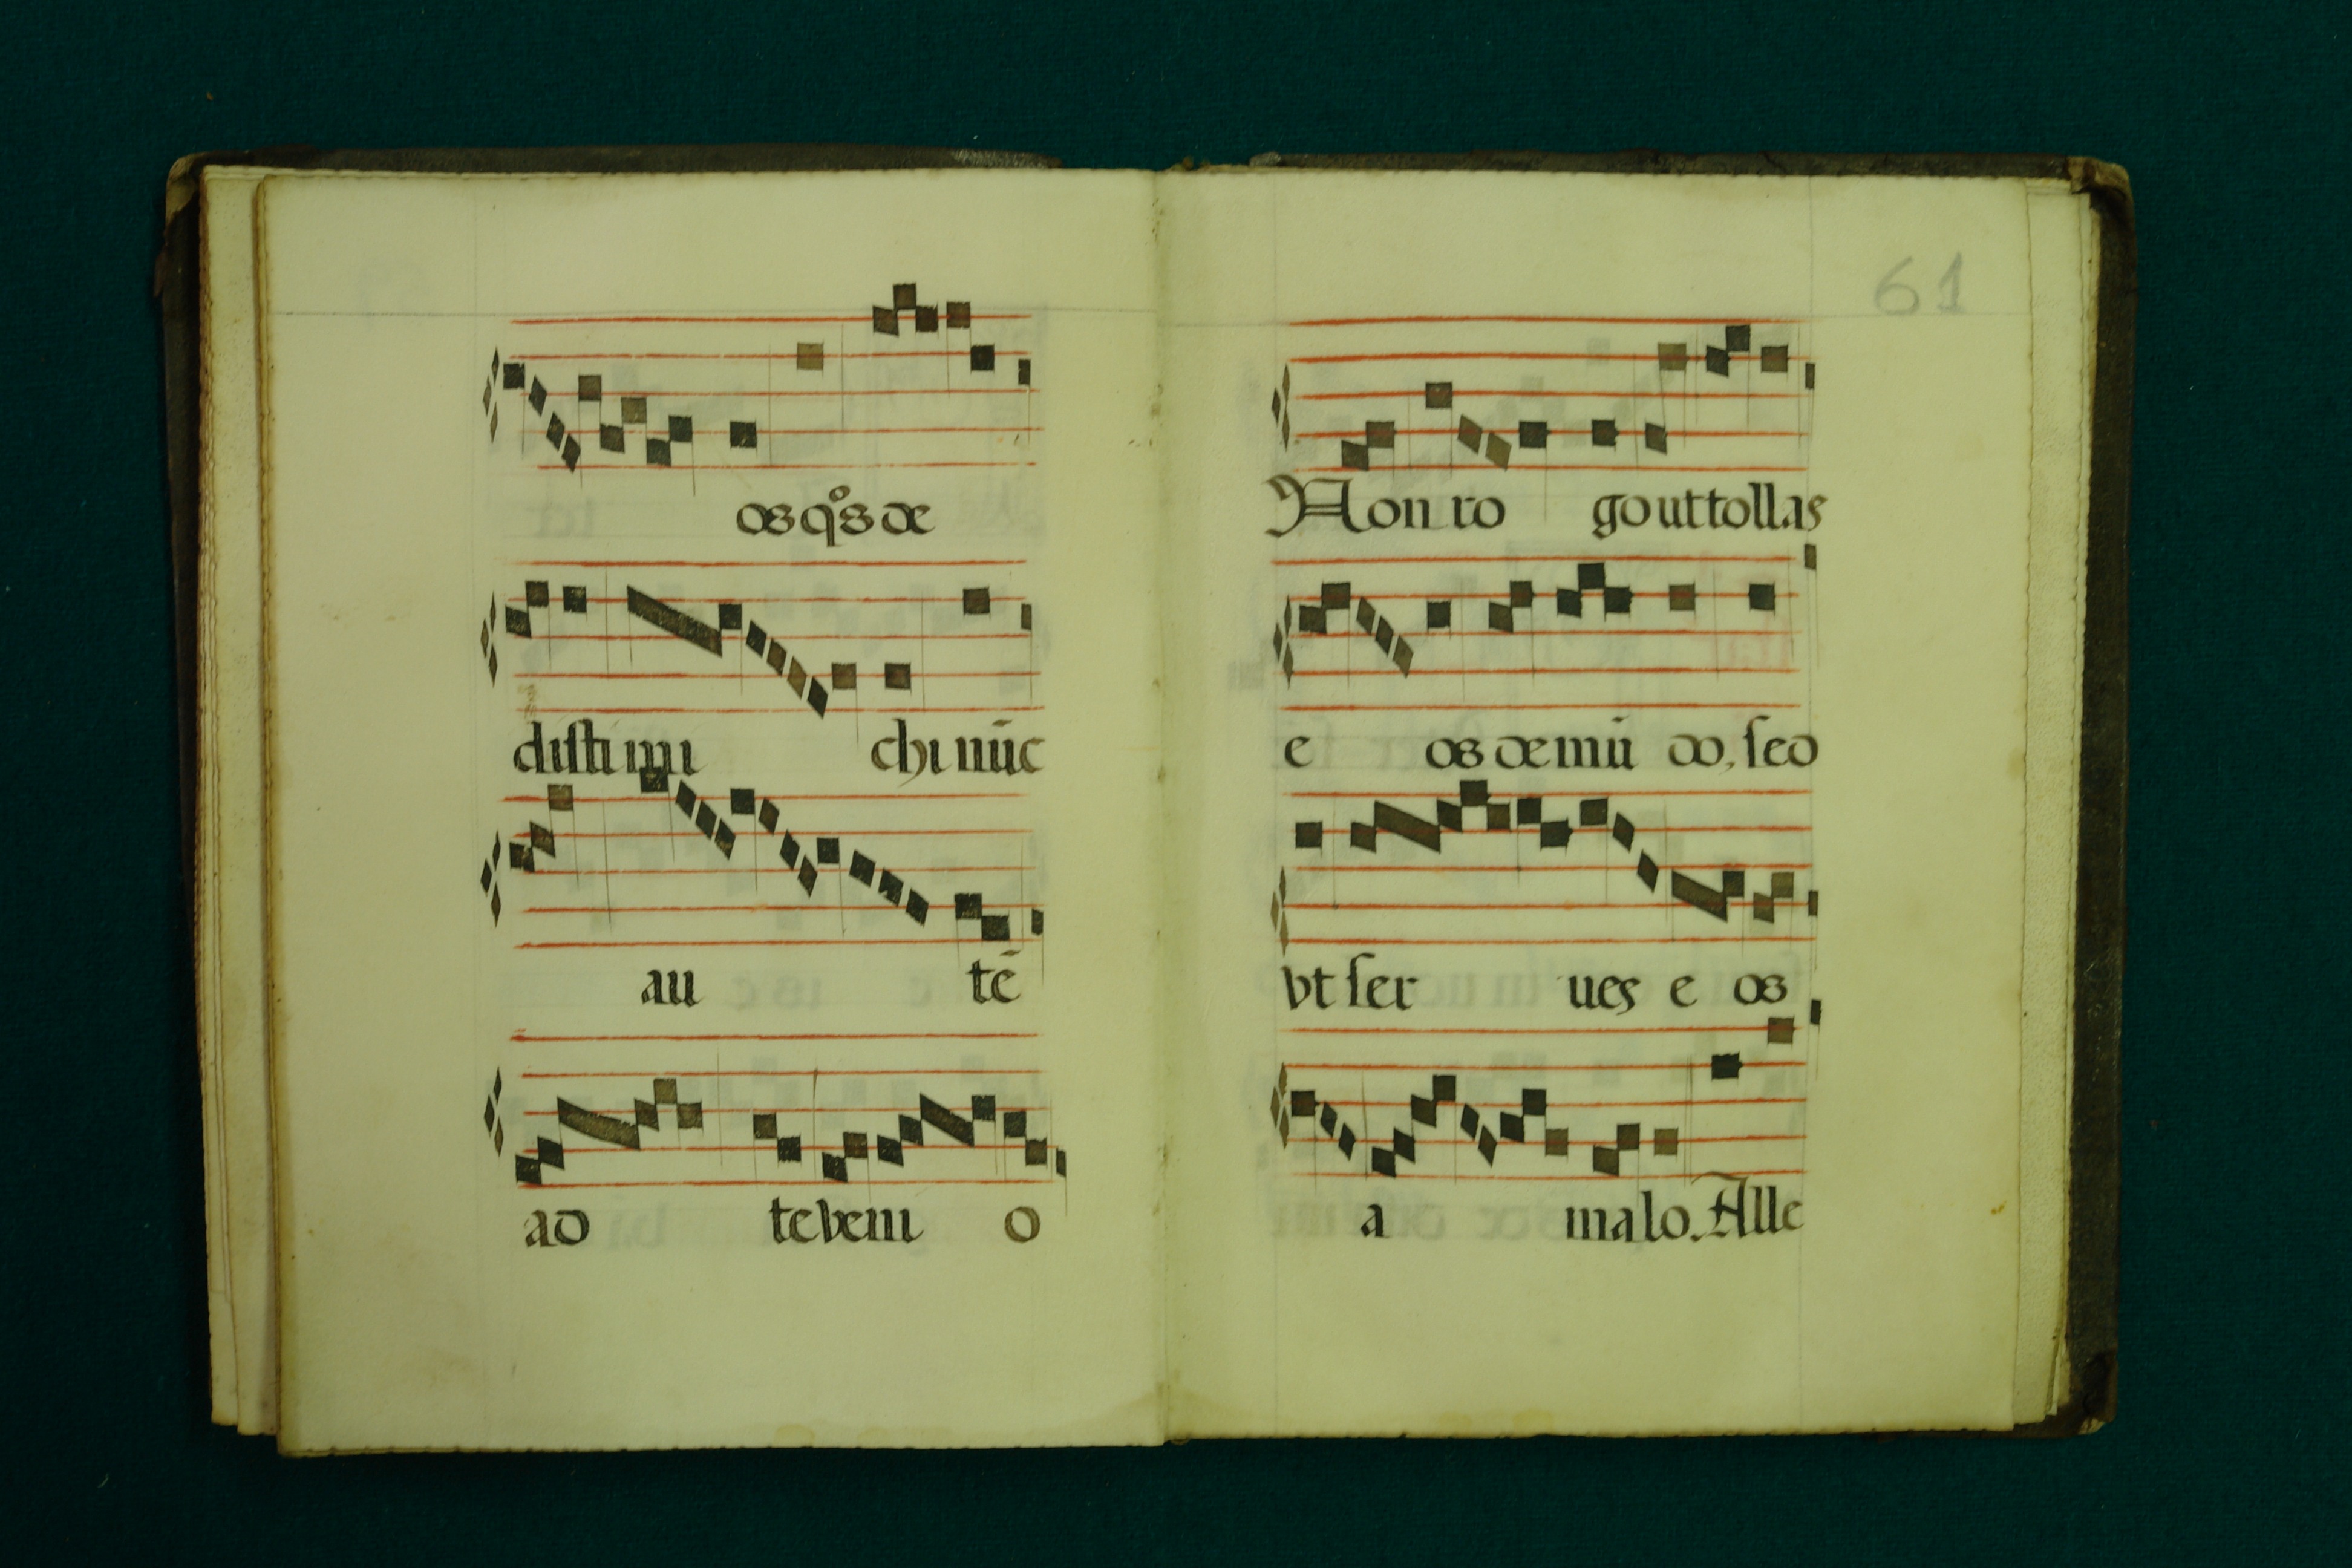 os qͦs de
disti mi chi nūc
au tē
ad te veni o
61
Non ro go ut tollas
e os de mū do, sed
vt ser ues e os
a malo. Alle